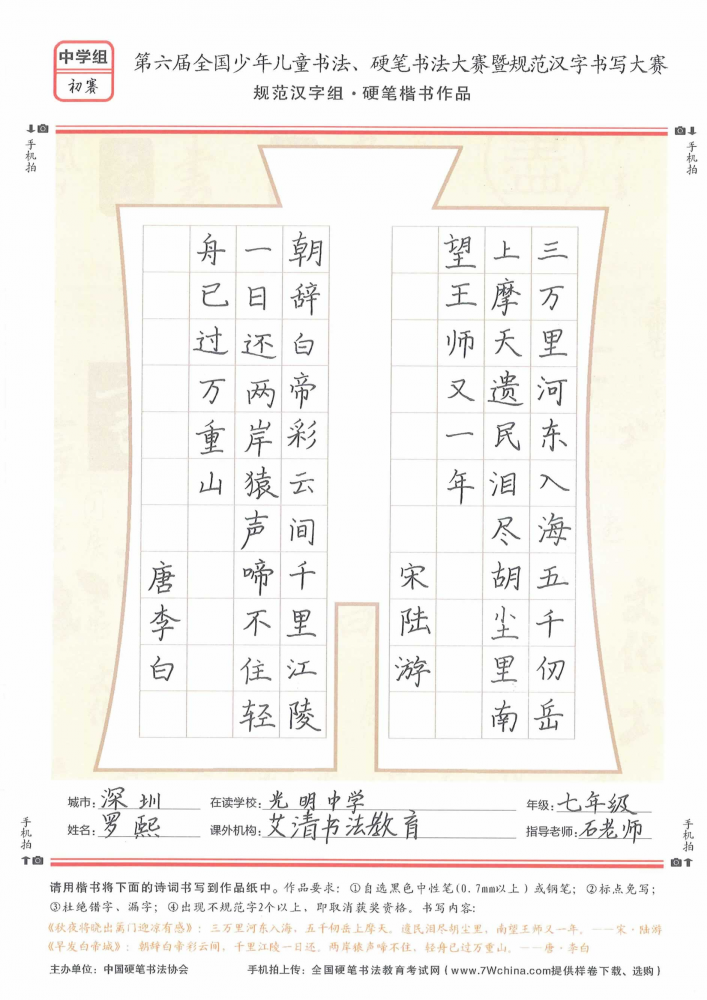 中学组
初赛
第六届全国少年儿童书法、硬笔书法大赛暨规范汉字书写大赛
规范汉字组·硬笔楷书作品
手机拍
手机拍
三万里河东入海五千仞岳
上摩天遗民泪尽胡尘里南
望王师又一年
宋陆游
朝辞白帝彩云间千里江陵
一日还两岸猿声啼不住轻
舟已过万重山
唐李白
城市：深圳 在读学校：光明中学 年级：七年级
姓名：罗熙 课外机构：艾清书法教育 指导老师：石老师
手机拍
手机拍
请用楷书将下面的诗词书写到作品纸中。作品要求：①自选黑色中性笔(0.7mm以上)或钢笔；②标点免写；
③杜绝错字、漏字；④出现不规范字2个以上，即取消获奖资格。书写内容：
《秋夜将晓出篱门迎凉有感》：三万里河东入海，五千仞岳上摩天。遗民泪尽胡尘里，南望王师又一年。——宋·陆游
《早发白帝城》：朝辞白帝彩云间，千里江陵一日还。两岸猿声啼不住，轻舟已过万重山。——唐·李白
主办单位：中国硬笔书法协会 手机拍上传：全国硬笔书法教育考试网（www.7Wchina.com提供样卷下载、选购）